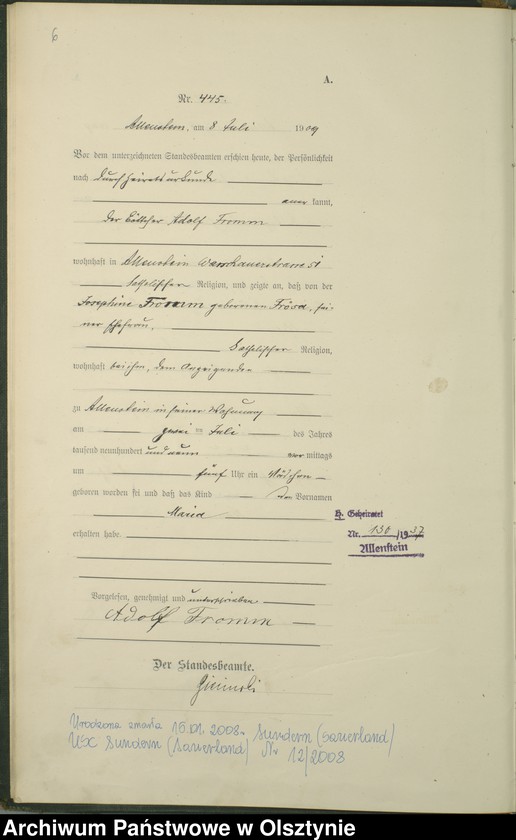 6
A.
Nr. 445.
Allenstein, am 8 Juli 1909
Vor dem unterzeichneten Standesbeamten erschien heute, der Persönlichkeit
nach durch Heiratsurkunde
aner kannt,
der Adolf Fromm
wohnhaft in Allenstein Warschauerstrasse 51
katholischer Religion, und zeigte an, daß von der
Josephine Fromm gebornen Frösa, sei-
ner Ehefrau,
katholischer Religion,
wohnhaft bei ihm, dem Anzeigenden
zu Allenstein in seiner Wohnung
am zwei ten Juli des Jahres
tausend neunhundert und neun vor mittags
um fünf Uhr ein Mädchen
geboren worden sei und daß das Kind den Vornamen
Maria
erhalten habe.
H. Geheiratet
Nr. 130/1937
Allenstein
Vorgelesen, genehmigt und unterschrieben
Adolf Fromm
Der Standesbeamte.
Urodzona zmarła 15.01.2008r. Sundern (Sauerland)
USC Sundern (Sauerland) Nr 12/2008
Archiwum Państwowe w Olsztynie